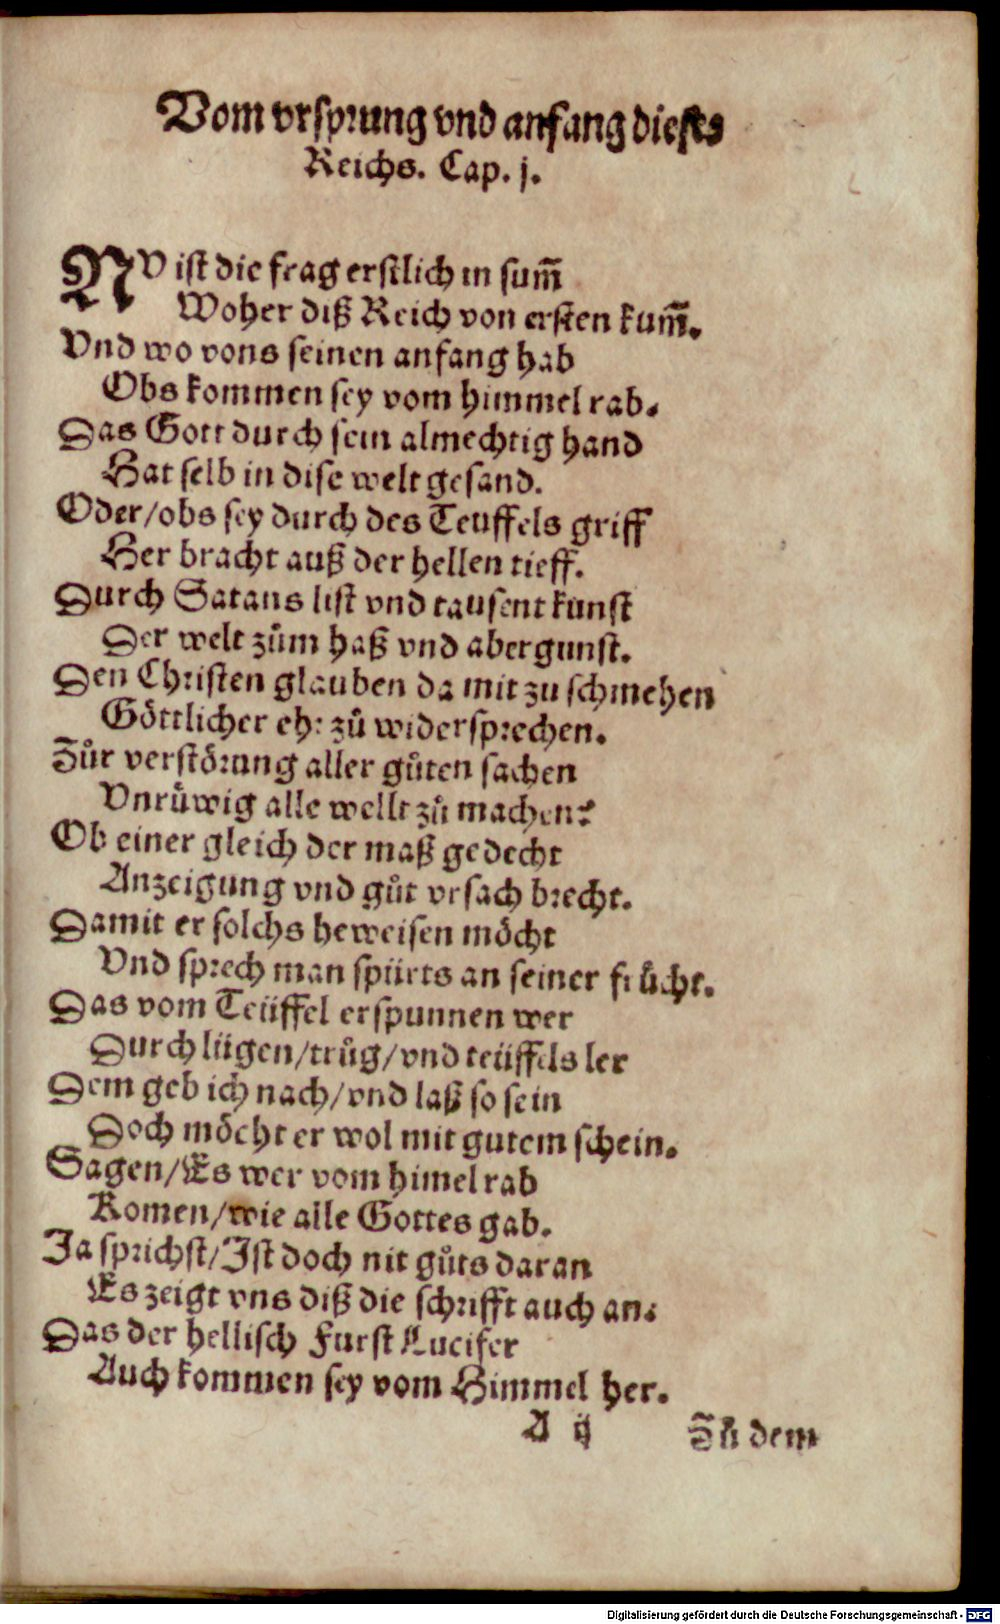 Vom vrsprung vnd anfang dieses
Reichs. Cap. j.
NV ist die frag erstlich in sum̃
Woher diß Reich von ersten kum̃.
Vnd wo vons seinen anfang hab
Obs kommen sey vom himmel rab.
Das Gott durch sein almechtig hand
Hat selb in dise welt gesand.
Oder/obs sey durch des Teuffels griff
Her bracht auß der hellen tieff.
Durch Satans list vnd tausent kunst
Der welt zům haß vnd abergunst.
Den Christen glauben da mit zu schmehen
Göttlicher ehr zů widersprechen.
Zůr verstörung aller gůten sachen
Vnrůwig alle wellt zů machen?
Ob einer gleich der maß gedecht
Anzeigung vnd gůt vrsach brecht.
Damit er solchs beweisen möcht
Vnd sprech man spürts an seiner frůcht.
Das vom Teüffel erspunnen wer
Durch lügen/trůg/vnd teüffels ler
Dem geb ich nach/vnd laß so sein
Doch möcht er wol mit gutem schein.
Sagen/Es wer vom himel rab
Komen/wie alle Gottes gab.
Ja sprichst/Ist doch nit gůts daran
Es zeigt vns diß die schrifft auch an.
Das der hellisch Furst Lucifer
Auch kommen sey vom Himmel her.
A ij Zů dem
Digitalisierung gefördert durch die Deutsche Forschungsgemeinschaft - DFG